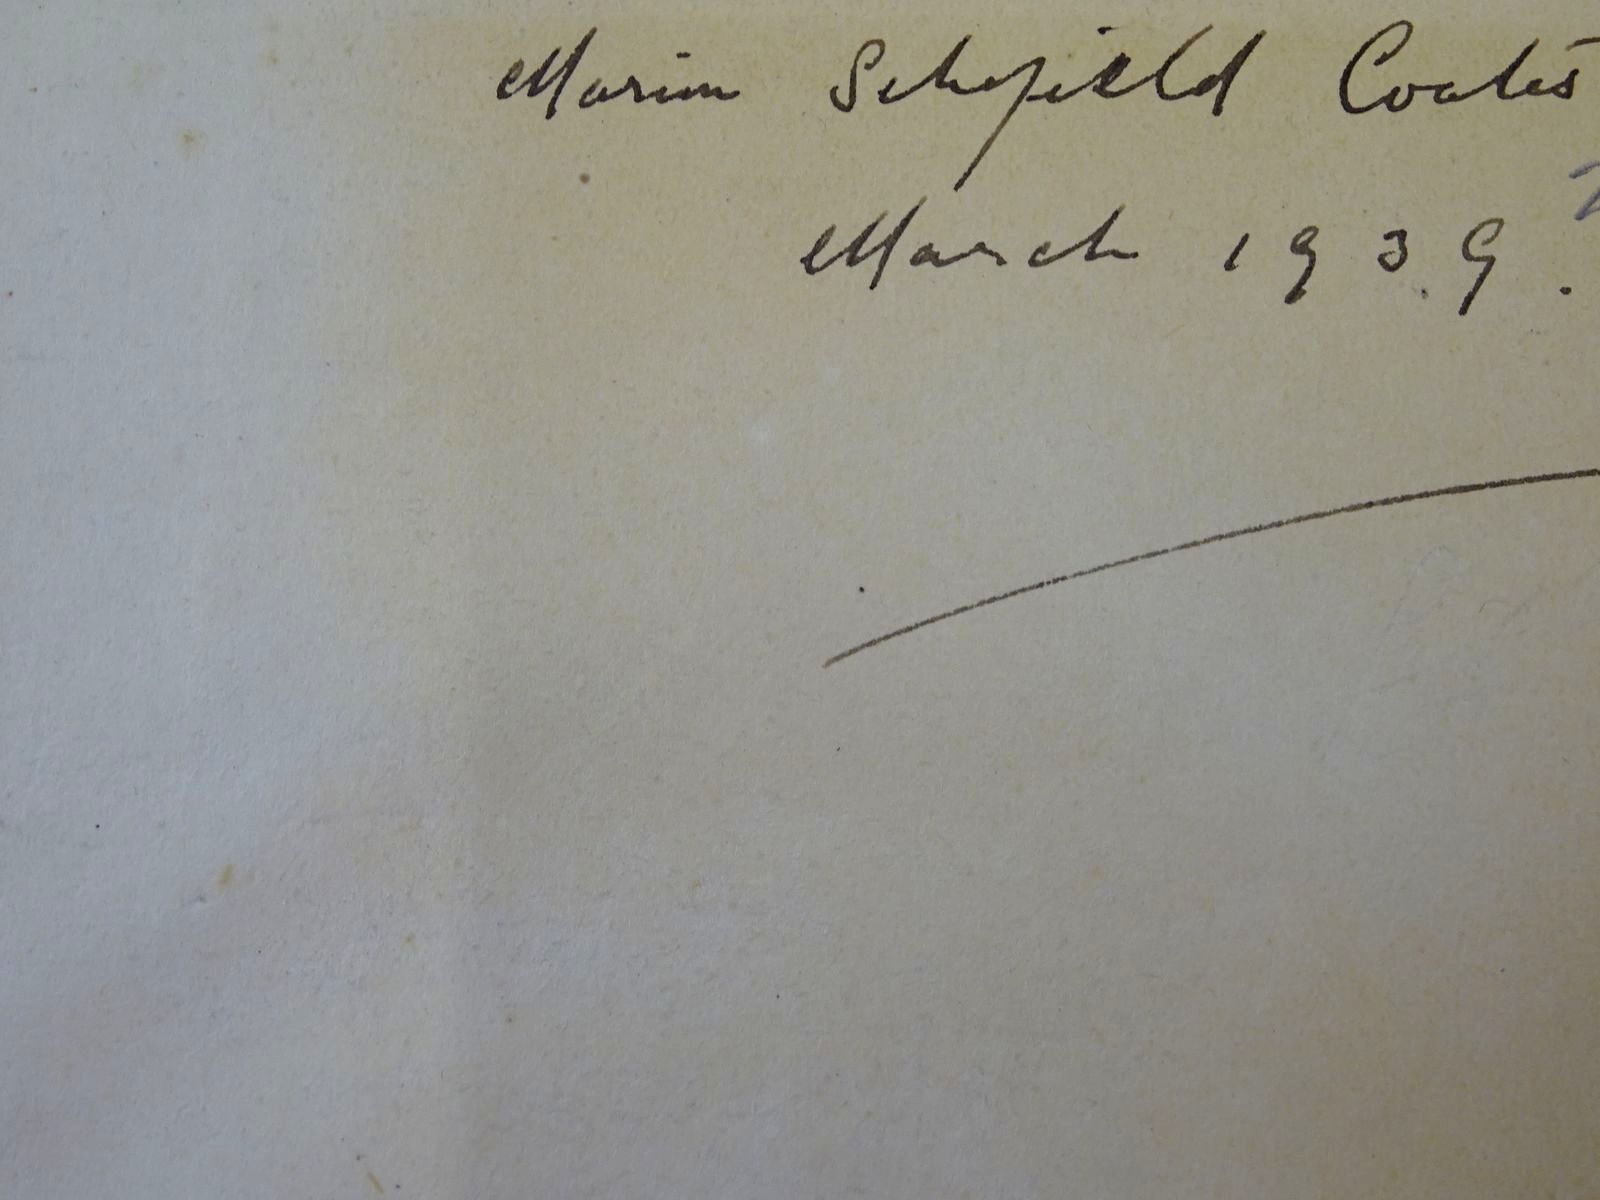 Marion Schofield Coates
March 1939.